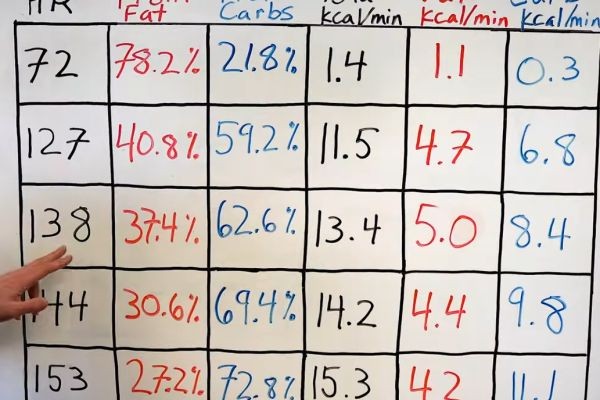 HR Fat Carbs kcal/min kcal/min kcal/min
72 78.2% 21.8% 1.4 1.1 0.3
127 40.8% 59.2% 11.5 4.7 6.8
138 37.4% 62.6% 13.4 5.0 8.4
144 30.6% 69.4% 14.2 4.4 9.8
153 27.2% 72.8% 15.3 4.2 11.1